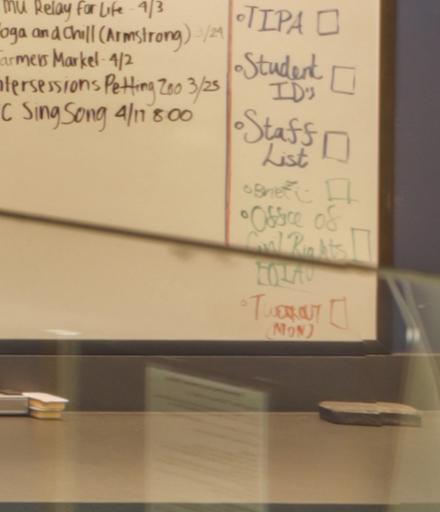 mu Relay for Life - 4/3
oga and Chill (Armstrong) 3/29
armers Market - 4/2
ntersessions Petting Zoo 3/25
C Sing Song 4/17 8:00
TIPA
Student
ID's
Staff
List
Office of
Civil Rights
(MON)